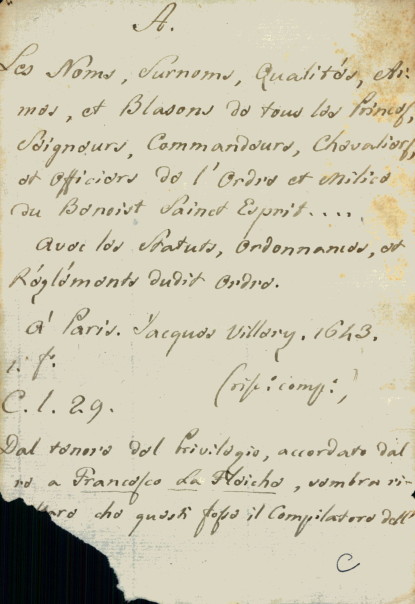 A.
Les Noms, Surnoms, Qualités, Ar-
mes, et Blasons de tous les Princes,
Seigneurs, Commandeurs, Chevaliers,
et Officiers de l'Ordre et Milice
du Benoist Sainct Esprit....
Avec les Statuts, Ordonnances, et
Régléments dudit Ordre.
À Paris. Jacques Villery. 1643.
1. f.
(risp: comp:)
C. l. 29.
Dal tenore del Privilegio, accordato dal
re a Francesco La Fleiche, sembra ri-
che questi fosse il Compilatore dell'
C